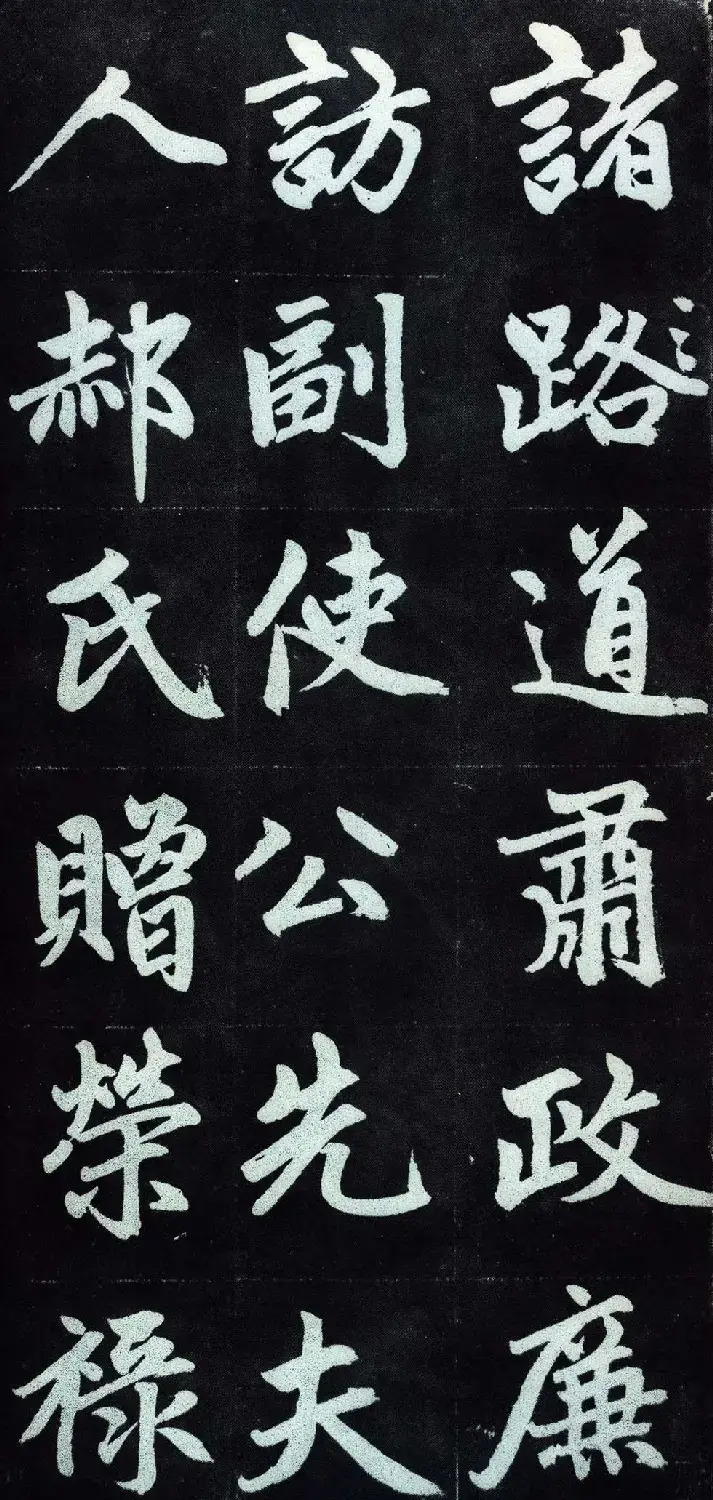 諸路之道肅政廉
訪副使公先夫
人郝氏贈榮祿